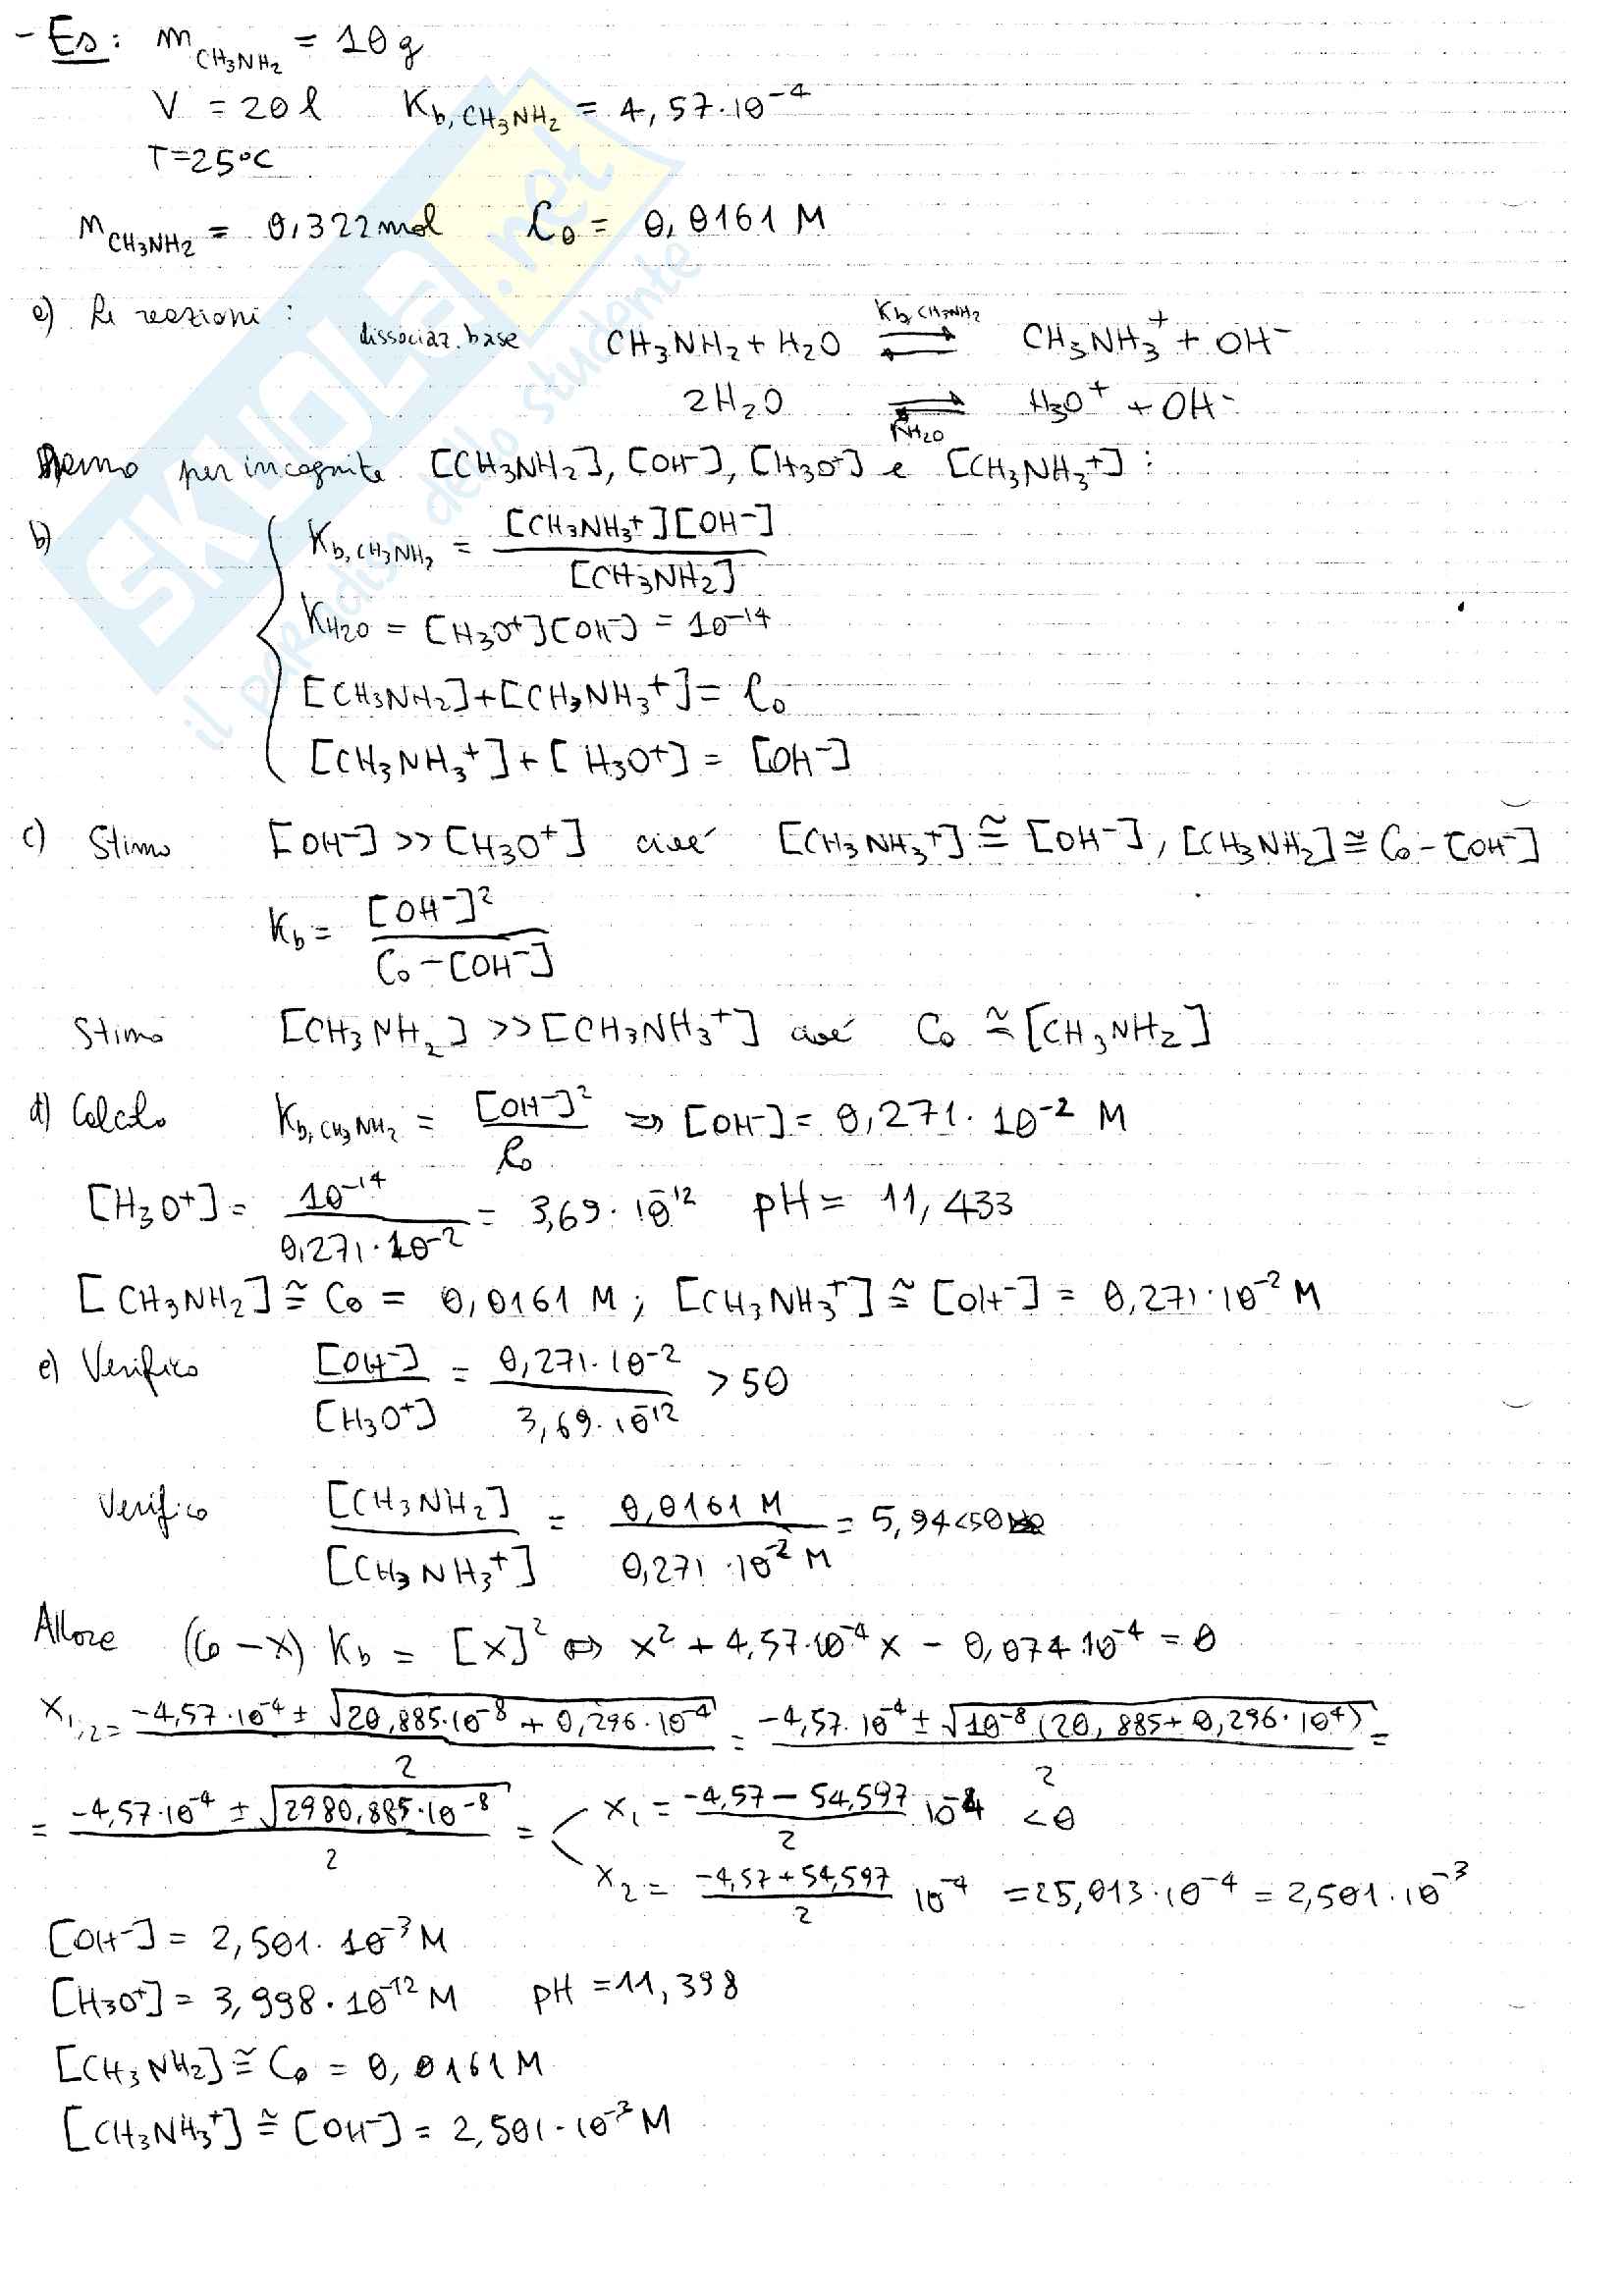 - Es: m CH3NH2 = 10 g
V = 20 l   Kb,CH3NH2 = 4,57·10^-4
T=25°C
n CH3NH2 = 0,322 mol   C0 = 0,0161 M
a) Le reazioni: dissociaz. base   CH3NH2 + H2O ⇌ (Kb,CH3NH2) CH3NH3+ + OH-
2H2O ⇌ (KH2O) H3O+ + OH-
per incognite [CH3NH2], [OH-], [H3O+] e [CH3NH3+]:
b) Kb,CH3NH2 = [CH3NH3+][OH-] / [CH3NH2]
KH2O = [H3O+][OH-] = 10^-14
[CH3NH2]+[CH3NH3+] = C0
[CH3NH3+]+[H3O+] = [OH-]
c) Stimo   [OH-] >> [H3O+] cioé [CH3NH3+] ≅ [OH-], [CH3NH2] ≅ C0 - [OH-]
Kb = [OH-]² / C0 - [OH-]
Stimo   [CH3NH2] >> [CH3NH3+] cioé C0 ≅ [CH3NH2]
d) Calcolo   Kb,CH3NH2 = [OH-]² / C0 ⇒ [OH-] = 0,271·10^-2 M
[H3O+] = 10^-14 / 0,271·10^-2 = 3,69·10^-12   pH = 11,433
[CH3NH2] ≅ C0 = 0,0161 M; [CH3NH3+] ≅ [OH-] = 0,271·10^-2 M
e) Verifico   [OH-] / [H3O+] = 0,271·10^-2 / 3,69·10^-12 > 50
Verifico   [CH3NH2] / [CH3NH3+] = 0,0161 M / 0,271·10^-2 M = 5,94 < 50
Allora   (C0 - x) Kb = [x]² ⇔ x² + 4,57·10^-4 x - 0,074·10^-4 = 0
x1,2 = -4,57·10^-4 ± √(20,885·10^-8 + 0,296·10^-4) / 2 = -4,57·10^-4 ± √(10^-8 (20,885 + 0,296·10^4)) / 2 =
= -4,57·10^-4 ± √(2980,885·10^-8) / 2 = x1 = -4,57 - 54,597 / 2 10^-4 < 0
x2 = -4,57 + 54,597 / 2 10^-4 = 25,013·10^-4 = 2,501·10^-3
[OH-] = 2,501·10^-3 M
[H3O+] = 3,998·10^-12 M   pH = 11,398
[CH3NH2] ≅ C0 = 0,0161 M
[CH3NH3+] ≅ [OH-] = 2,501·10^-3 M
SKUOLA.net
il paradiso dello studente